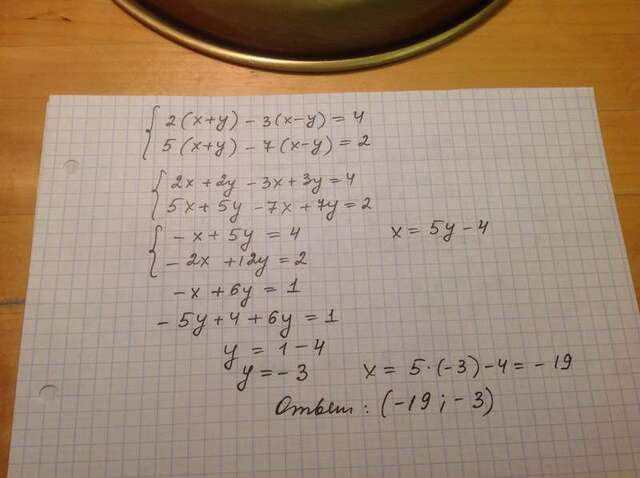 2(x+y) - 3(x-y) = 4
5(x+y) - 7(x-y) = 2
2x + 2y - 3x + 3y = 4
5x + 5y - 7x + 7y = 2
-x + 5y = 4
x = 5y - 4
-2x + 12y = 2
-x + 6y = 1
-5y + 4 + 6y = 1
y = 1 - 4
y = -3
x = 5·(-3) - 4 = -19
Ответ: (-19; -3)